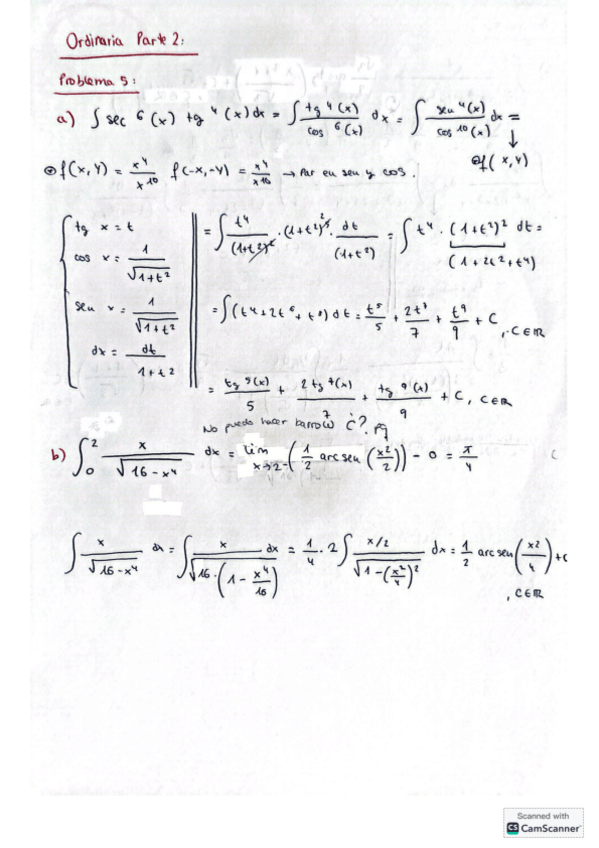 Ordinaria Parte 2:
Problema 5:
a) ∫ sec⁶(x) tg⁴(x) dx = ∫ tg⁴(x) / cos⁶(x) dx = ∫ sen⁴(x) / cos¹⁰(x) dx =
↓
f(x,y)
f(x,y) = x⁴/x¹⁰ f(-x,-y) = x⁴/x¹⁰ → Par en sen y cos.
tg x = t
cos x = 1/√(1+t²)
sen x = 1/√(1+t²)
dx = dt/(1+t²)
= ∫ t⁴/(1+t²)² · (1+t²)⁵ · dt/(1+t²) = ∫ t⁴ · (1+t²)² dt =
(1+2t²+t⁴)
= ∫ (t⁴+2t⁶+t⁸) dt = t⁵/5 + 2t⁷/7 + t⁹/9 + C, C∈ℝ
= tg⁵(x)/5 + 2tg⁷(x)/7 + tg⁹(x)/9 + C, C∈ℝ
No puedo hacer barrow ¿?
b) ∫₀² x/√(16-x⁴) dx = lim x→2⁻ (1/2 arcsen(x²/2)) - 0 = π/4
∫ x/√(16-x⁴) dx = ∫ x/√(16·(1-x⁴/16)) dx = 1/4 · 2 ∫ x/2/√(1-(x²/4)²) dx = 1/2 arcsen(x²/4) + C
, C∈ℝ
Scanned with
CS CamScanner